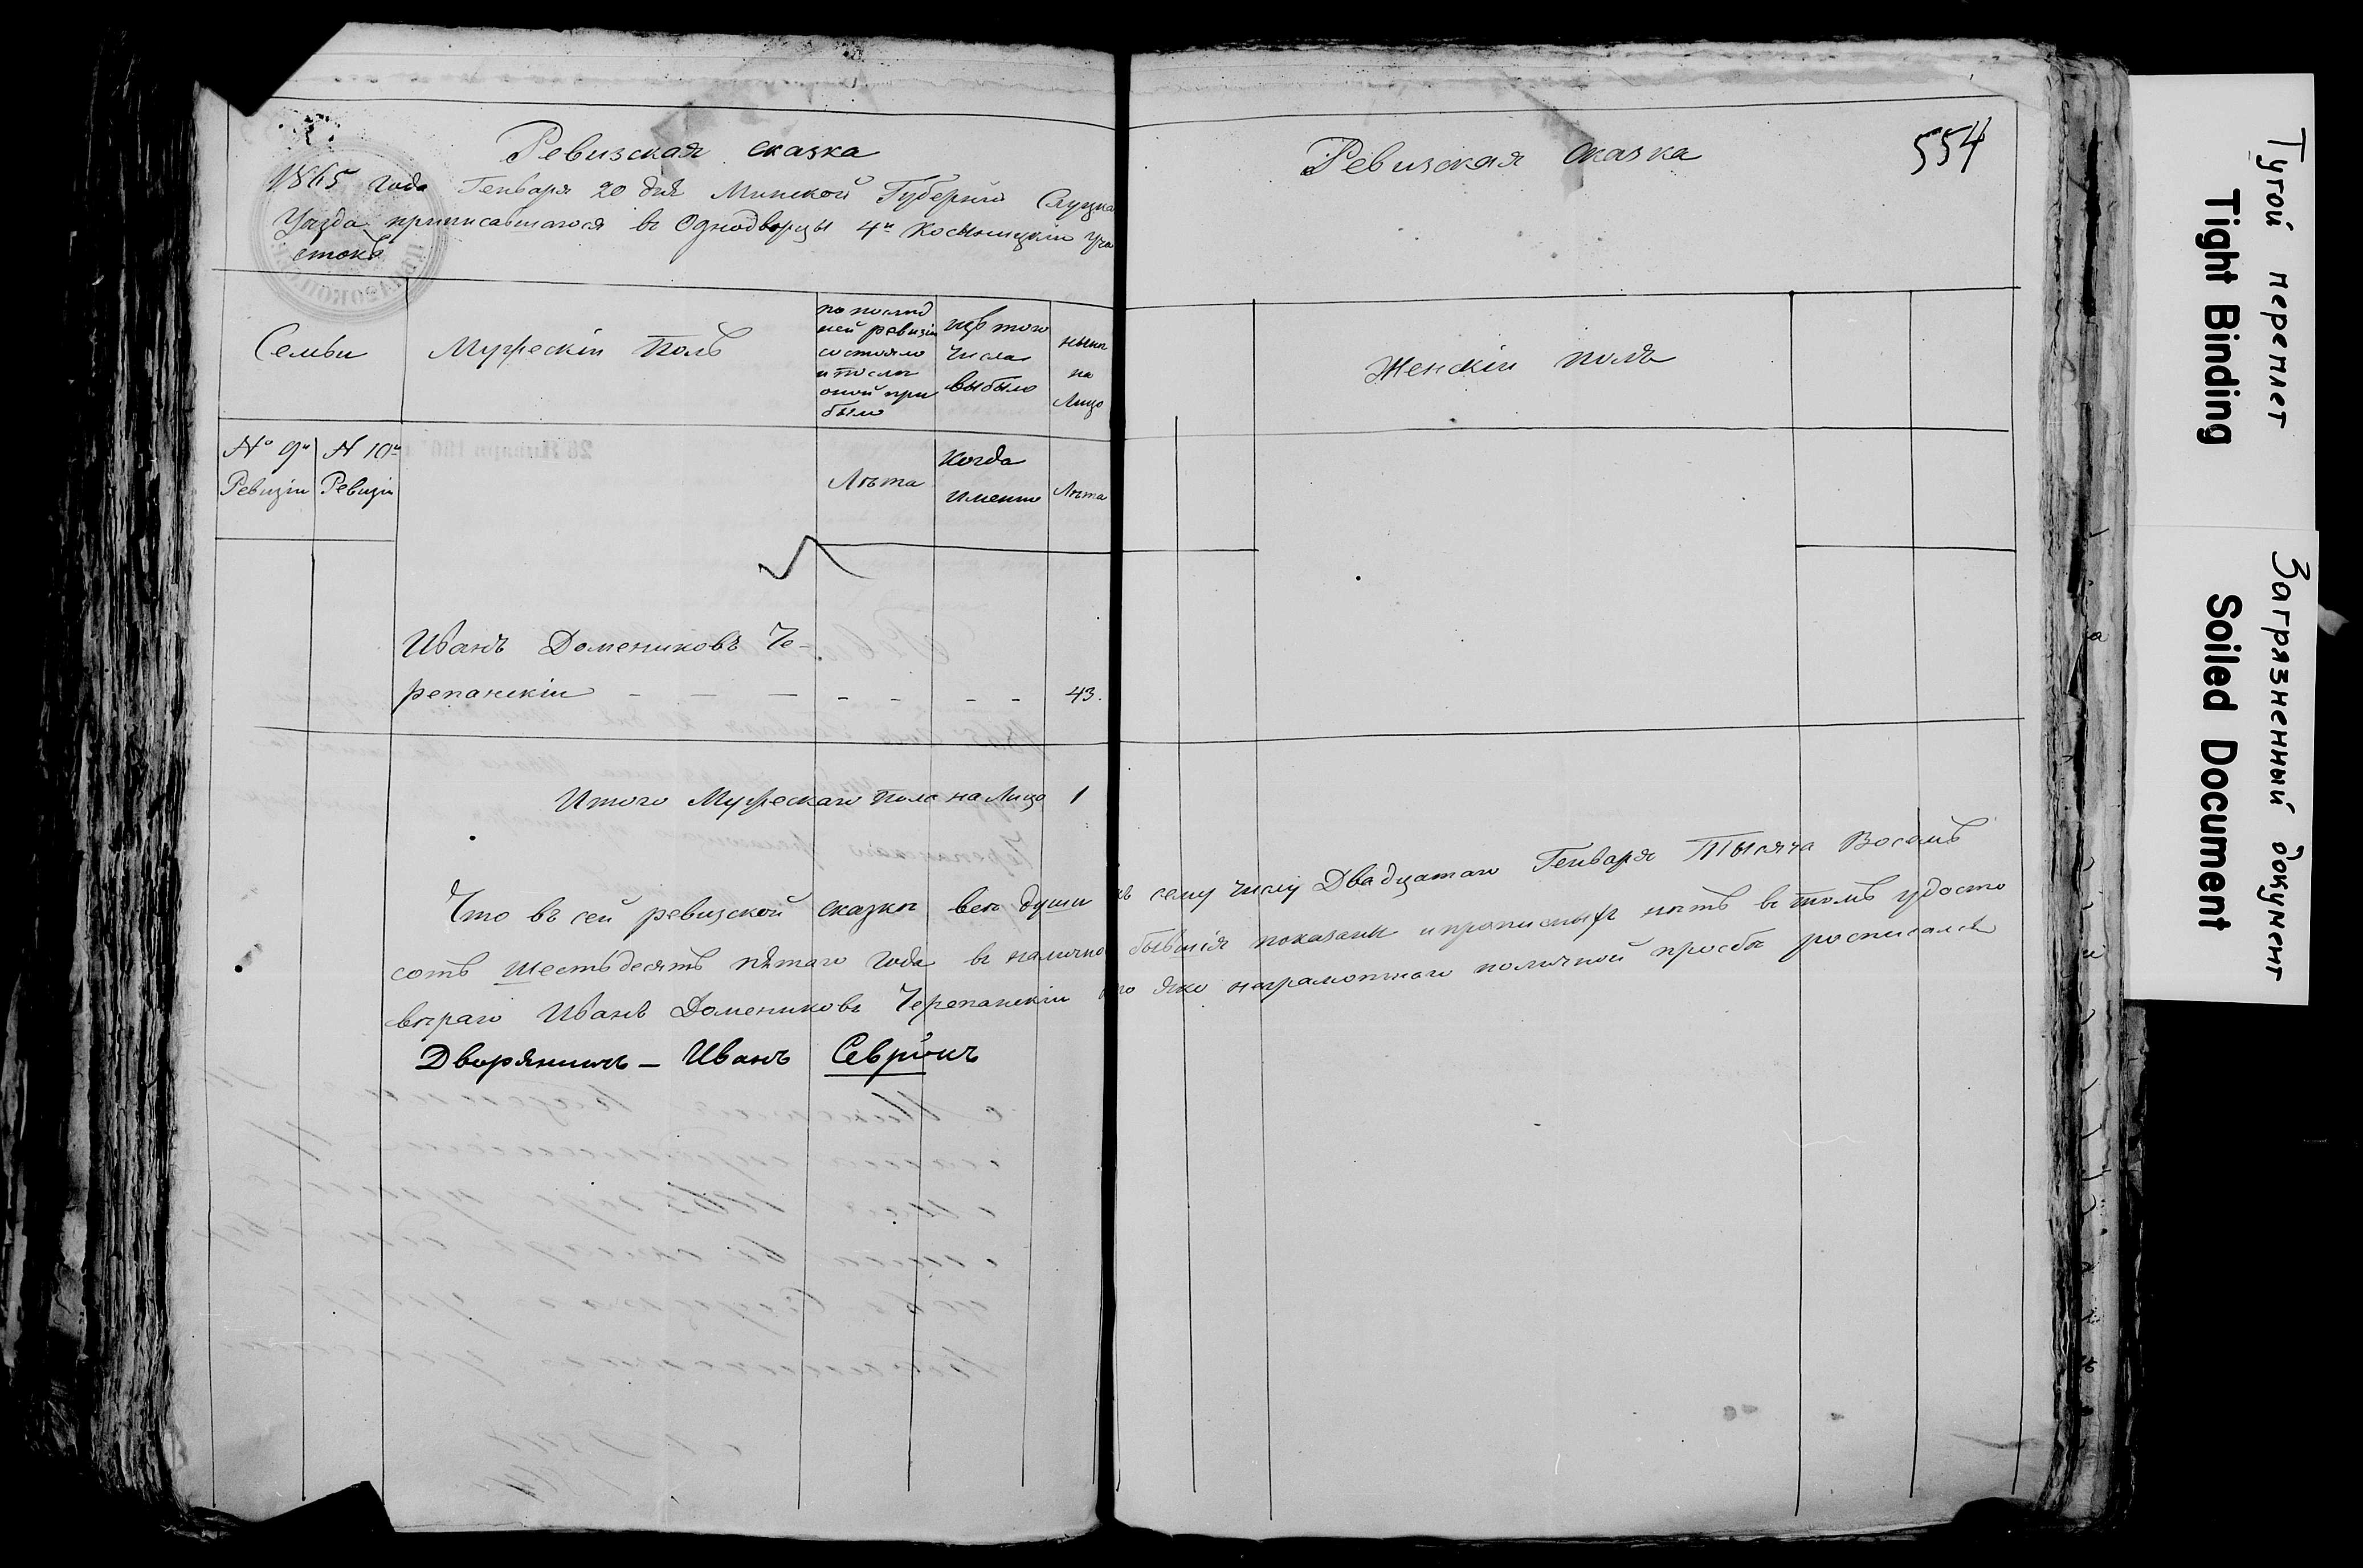 Ревизская сказка
1865 года Генваря 20 дня Минской Губерніи Слуцка
Уѣзда приписавшагося въ Однодворцы 4го
стокъ
Семьи
Мужескій Полъ
по послѣд
ней ревизіи
состояло
и послѣ
оной при
было
изъ того
числа
выбыло
нынѣ
на
Лицо
№ 9й
Ревизіи
№ 10й
Ревизіи
Лѣта
Когда
имянно
Лѣта
Иванъ Домениковъ Че-
репанскій - - - - - - - 43.
Итого Мужескаго Пола на Лицо 1
Ревизская Сказка
554
Женскій полъ
Что въ сей ревизской сказкѣ всѣ души къ сему числу Двадцатаго Генваря Тысяча Восемь
сотъ шестьдесятъ пятаго года въ налично бывшія показаны и прописныхъ нѣтъ въ томъ удосто
вѣряю Иванъ Домениковъ Черепанскій его яко неграмотнаго по личной просьбѣ росписался
Дворянинъ - Иванъ Севрукъ
Тугой переплет
Tight Binding
Загрязненный документ
Soiled Document